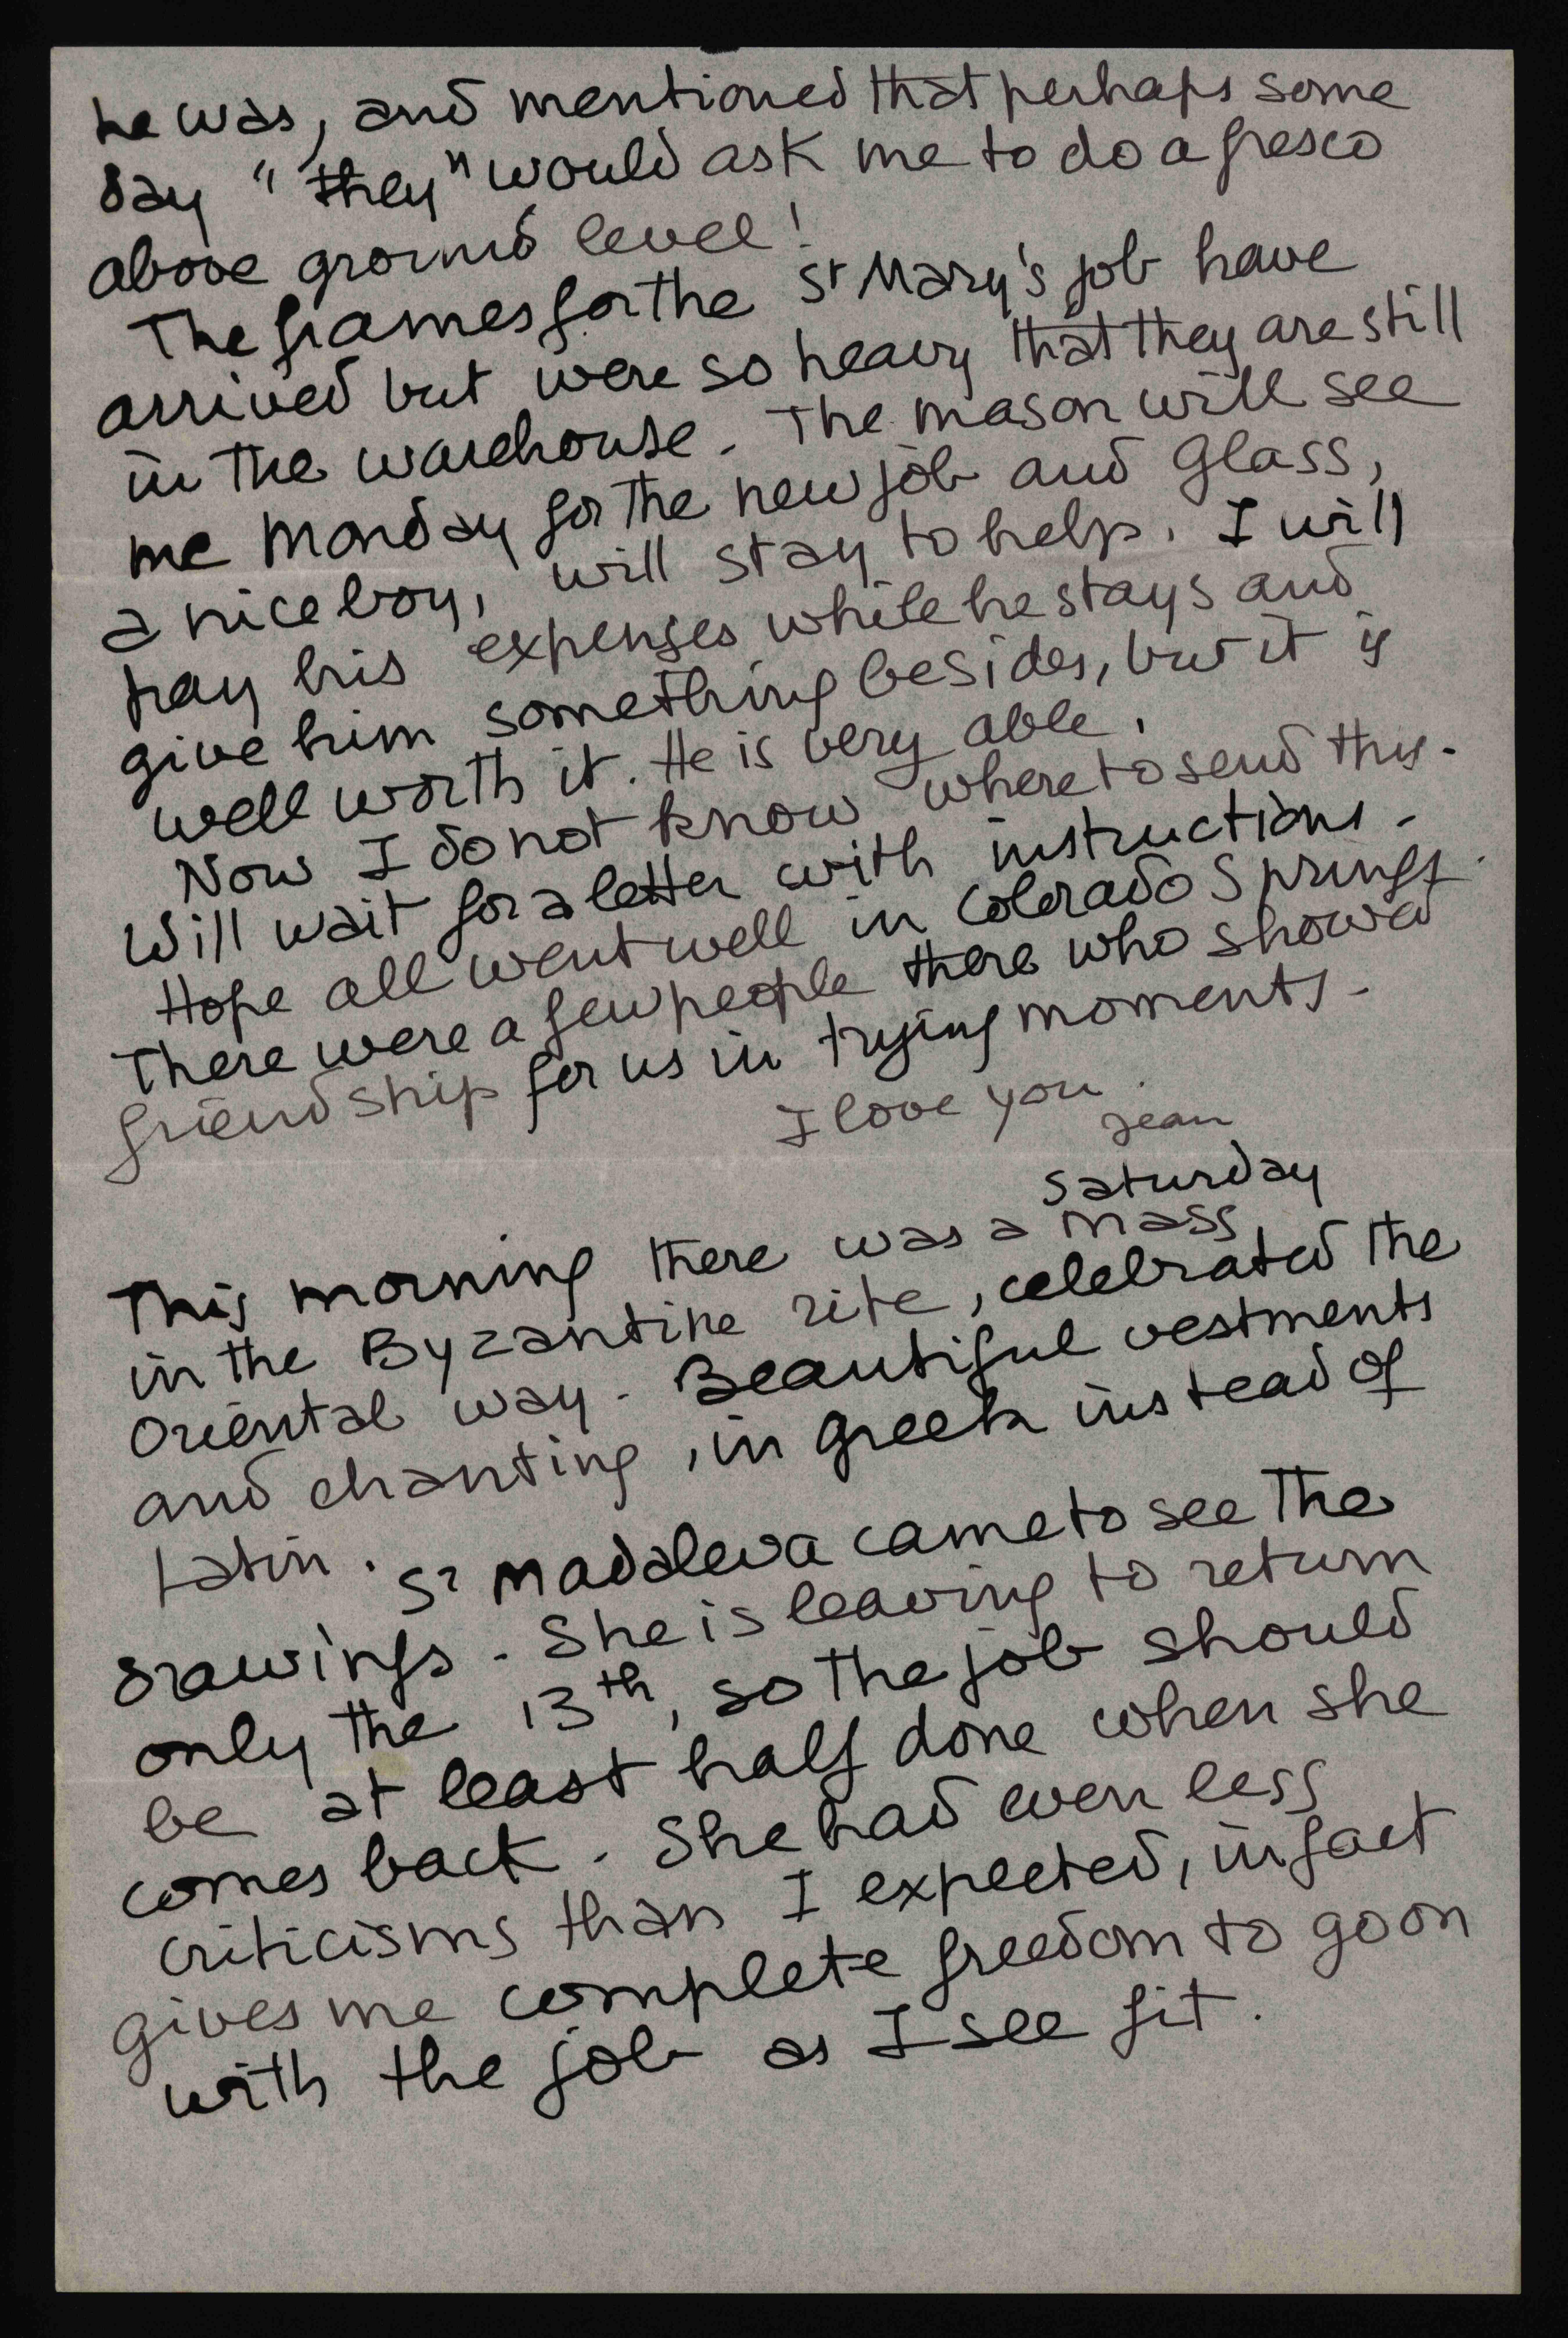 he was, and mentioned that perhaps some
day "they" would ask me to do a fresco
above ground level!
The frames for the St Mary's job have
arrived but were so heavy that they are still
in the warehouse. The mason will see
me Monday for the new job and Glass,
a nice boy, will stay to help. I will
pay his expenses while he stays and
give him something besides, but it is
well worth it. He is very able.
Now I do not know where to send this.
Will wait for a letter with instructions.
Hope all went well in Colorado Springs.
There were a few people there who showed
friendship for us in trying moments.
I love you.
Jean
Saturday
This morning there was a Mass
in the Byzantine rite, celebrated the
Oriental way. Beautiful vestments
and chanting, in greek instead of
Latin. Sr Madaleva came to see the
drawings. She is leaving to return
only the 13th, so the job should
be at least half done when she
comes back. She had even less
criticisms than I expected, in fact
gives me complete freedom to go on
with the job as I see fit.